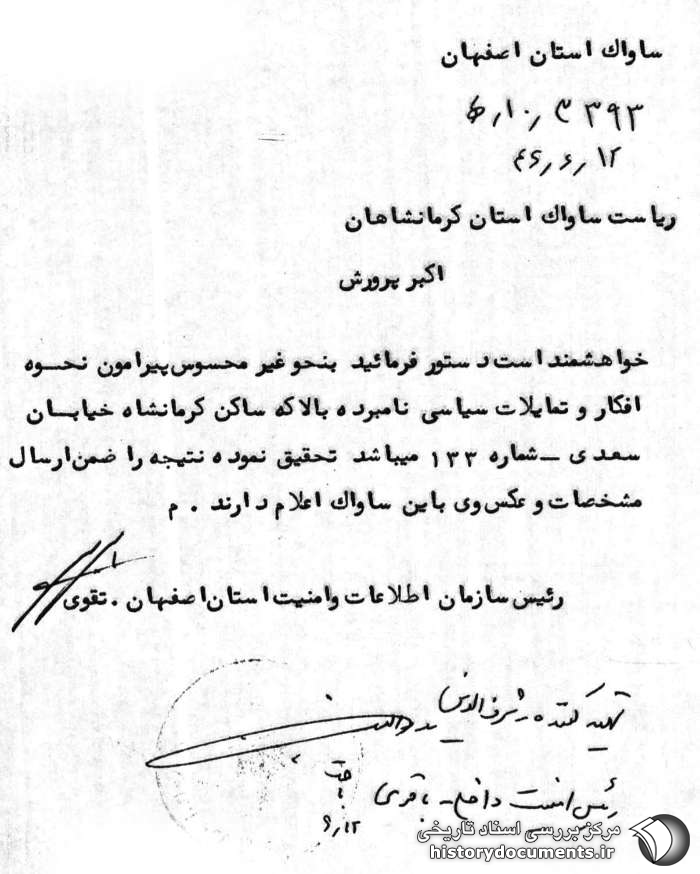 ساواك استان اصفهان
۳۹۳ ۱۰٫ ه‍
۴۶٫۶٫۱۲
ریاست ساواك استان کرمانشاهان
اکبر پرورش
خواهشمند است دستور فرمائید بنحو غیر محسوس پیرامون نحوه
افکار و تمایلات سیاسی نامبرده بالا که ساکن کرمانشاه خیابان
سعدی ــ شماره ۱۳۳ میباشد تحقیق نموده نتیجه را ضمن ارسال
مشخصات و عکس وی باین ساواك اعلام دارند . م
رئیس سازمان اطلاعات و امنیت استان اصفهان . تقوی
تهیه کننده شرف الدین
رئیس امنیت داخلی ـ باقری
۶٫۱۲
مرکز بررسی اسناد تاریخی
historydocuments.ir